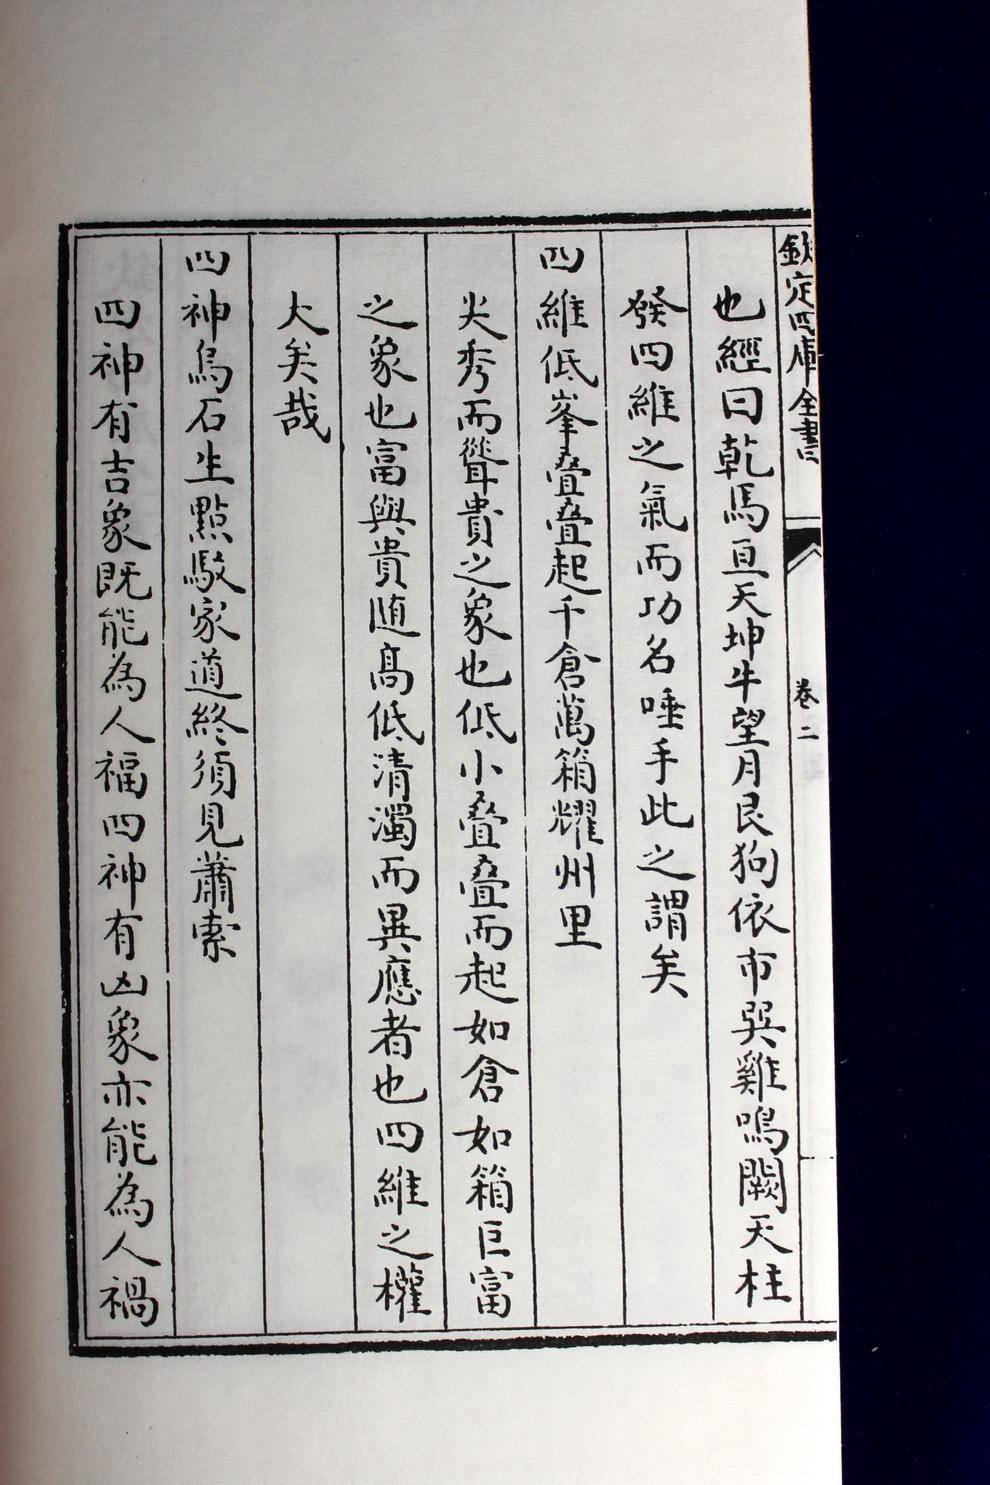 欽定四庫全書
卷二
也經曰乾馬亘天坤牛望月艮狗依市巽雞鳴闕天柱
發四維之氣而功名唾手此之謂矣
四維低峯疊疊起千倉萬箱耀州里
尖秀而聳貴之象也低小疊疊而起如倉如箱巨富
之象也富與貴随髙低清濁而異應者也四維之權
大矣哉
四神烏石生點駁家道終須見蕭索
四神有吉象既能為人福四神有凶象亦能為人禍